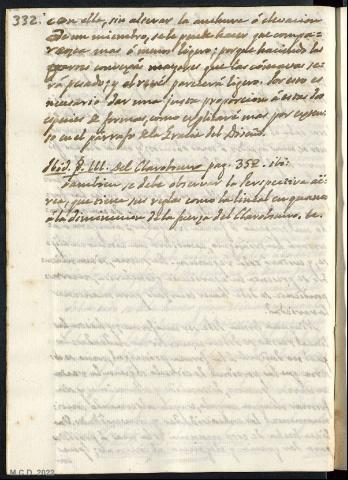 332. con ella, sin alterar la anchura ó elevacion
de un miembro, se le puede hacer que compa-
rezca mas ó menos ligero; porque haciendo las
formas convexas mayores que las cóncavas se-
rá pesado; y al revés parecerá ligero. Por eso es
necesario dar una justa proporcion á estas dos
especies de formas, como explicaré mas por exten-
so en el párrafo de la Gracia del Diseño.
Ibid. §. III. del Claroobscuro pag. 352. ibi:
Tambien se debe observar la Perspectiva aë-
rea, que tiene sus reglas como la lineal en quanto
á la diminucion de la fuerza del Claroobscuro. &c.
M.C.D. 2022